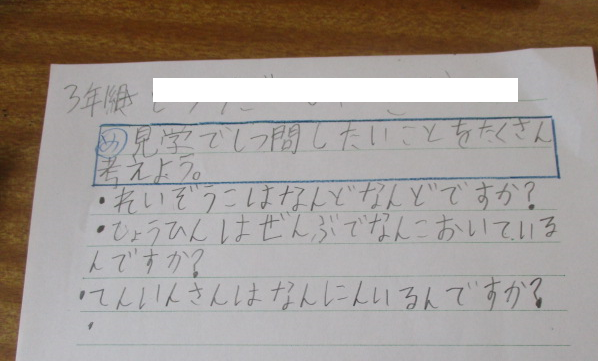 3年組
め 見学でしつ問したいことをたくさん
考えよう。
・れいぞうこはなんどなんどですか?
・ひょうひんはぜんぶでなんこおいている
んですか?
・てんいんさんはなんにんいるんですか?
・